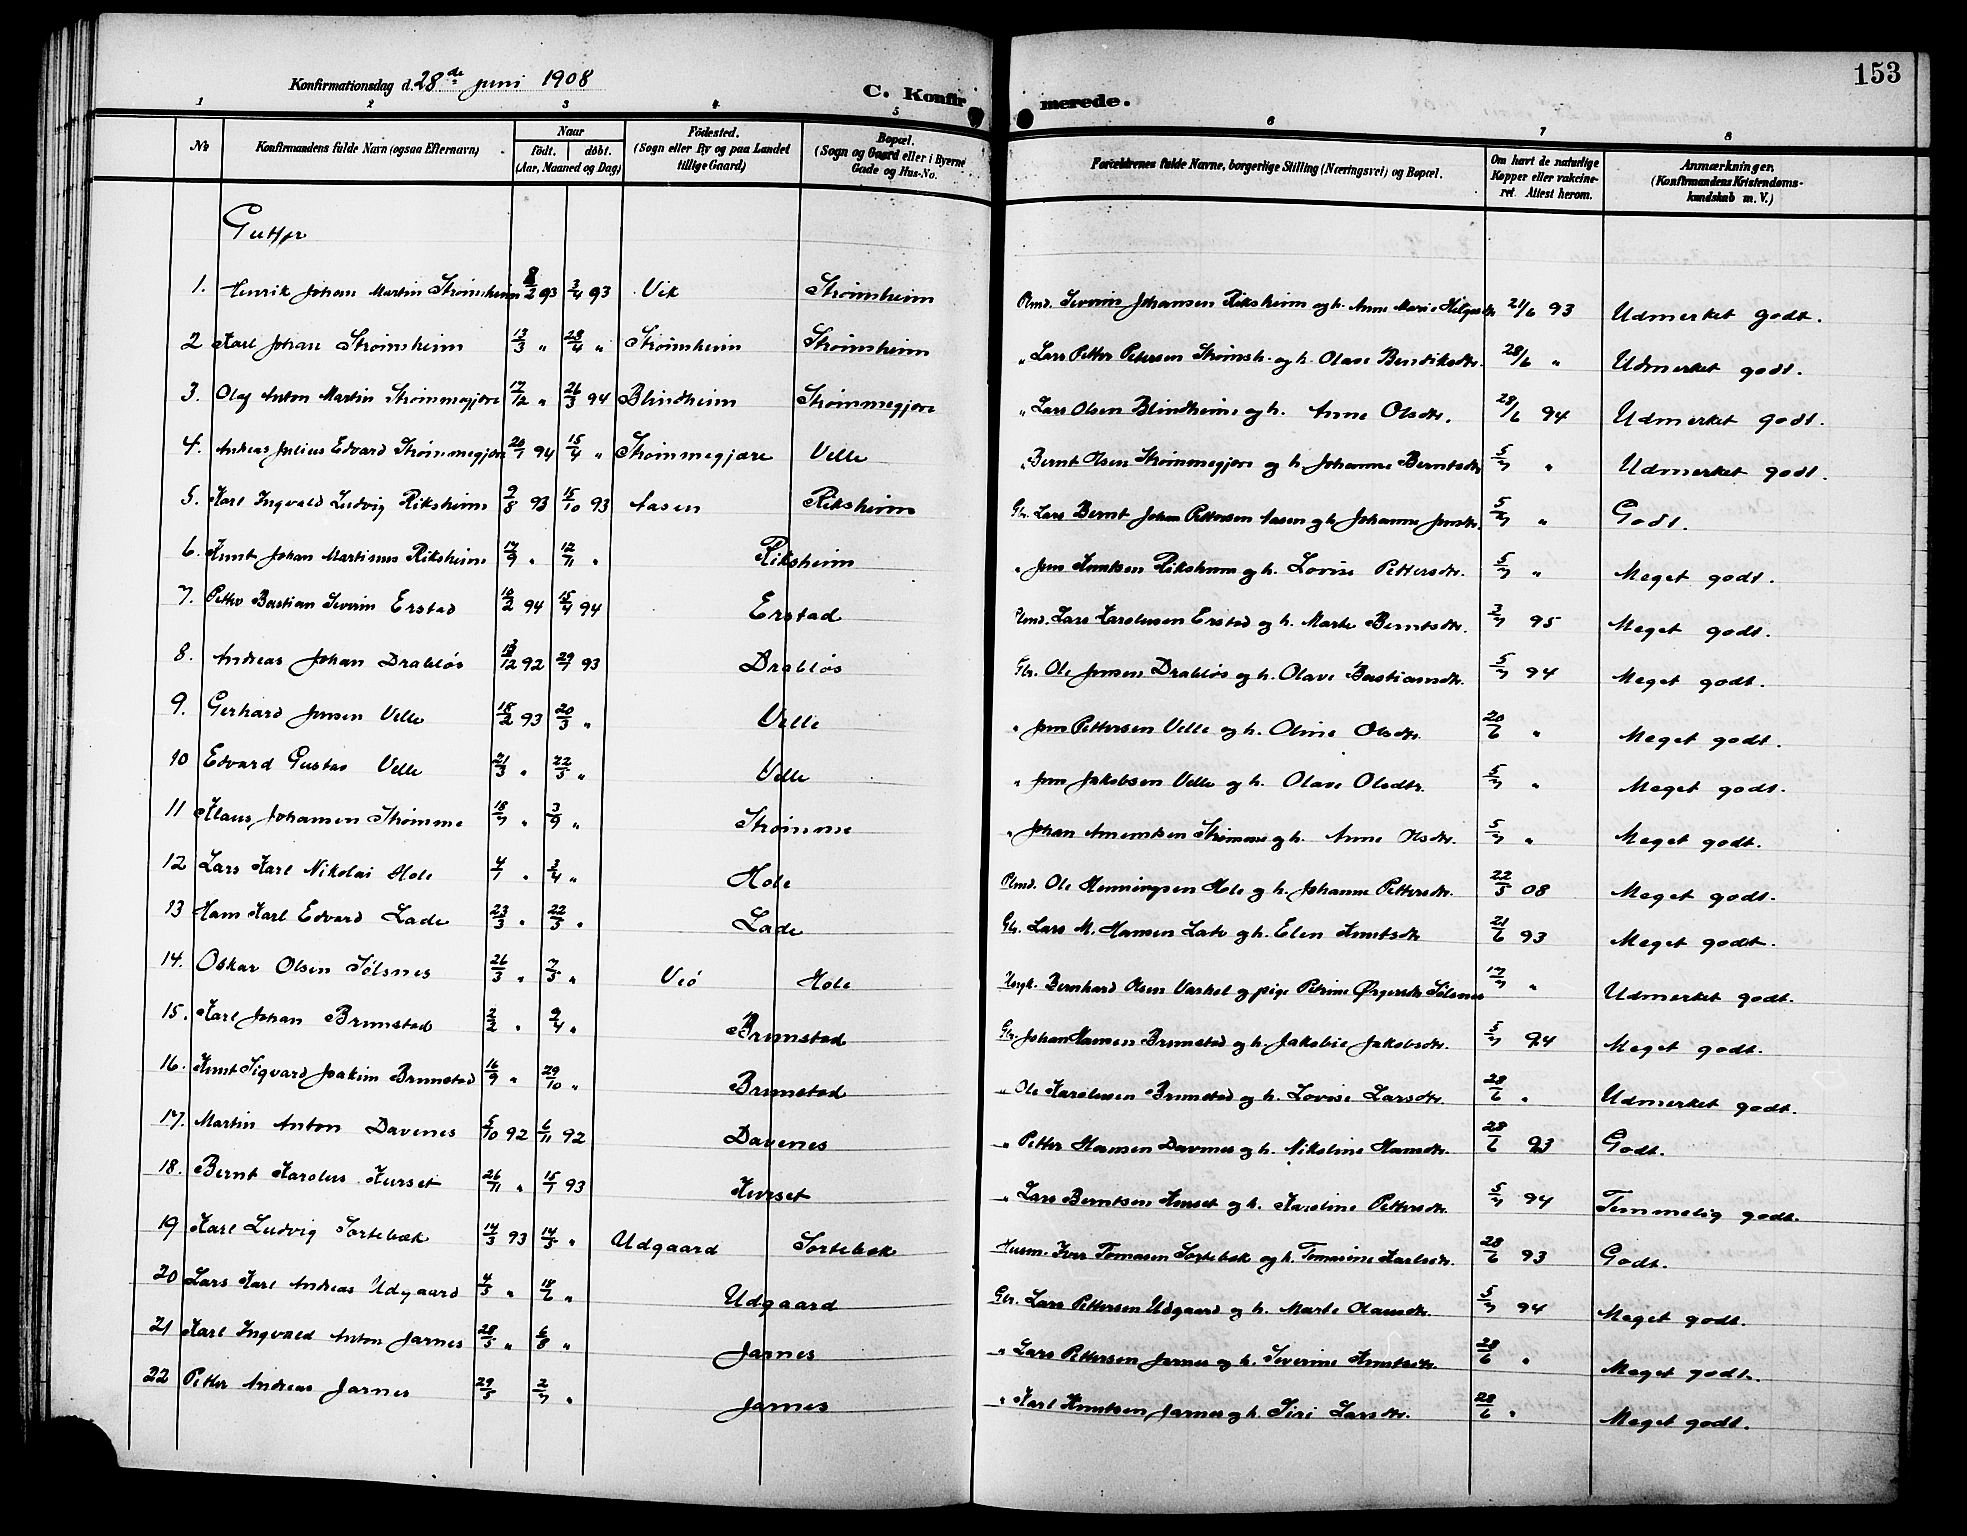 153
Konfirmationsdag d. 28de juni 1908
C. Konfirmerede.
1 2 3 4 5 6 7 8
No Konfirmandens fulde Navn (ogsaa Efternavn) Naar født. døbt. (Aar, Maaned og Dag) Fødested. (Sogn eller By og paa Landet tillige Gaard) Bopæl. (Sogn og Gaard eller i Byerne Gade og Hus-No. Forældrenes fulde Navne, borgerlige Stilling (Næringsvei) og Bopæl. Om havt de naturlige Kopper eller vakcineret. Attest herom. Anmærkninger. (Konfirmandens Kristendomskundskab m. V.)
Gutter
1. Henrik Johan Martin Strømsheim 8/2 93 3/4 93 Vik Strømsheim Severin Johansen Riksheim og h. Anne Marie 21/6 93 Udmerket godt.
2 Karl Johan Strømsheim 13/3 " 28/4 " Strømsheim Strømsheim " Lars Petter Petersen Strømsh. og h. Olave Bendiksdtr. 28/6 " Udmerket godt.
3. Olaf Anton Martin Strømmegjære 17/12 " 26/3 94 Blindheim Strømmegjære " Lars Olsen Blindheim og h. Anne Olsdtr. 28/6 94 Udmerket godt.
4. Andreas Julius Edvard Strømmegjære 20/1 94 15/4 " Strømmegjære Velle " Bernt Olsen Strømmegjære og h. Johanne Berntsdtr 5/7 " Udmerket godt.
5. Karl Ingvald Ludvig Riksheim 9/8 93 15/10 93 Aasen Riksheim Gbr. Lars Bernt Johan Pettersen Aasen og h. Johanne Jensdtr. 5/7 " Godt.
6. Knut Johan Martinus Riksheim 17/9 " 12/11 " Riksheim " Jens Knutsen Riksheim og h. Lovise Pettersdtr. 5/7 " Meget godt.
7. Petter Bastian Severin Erstad 10/2 94 15/4 94 Erstad Lars Karolusen Erstad og h. Marte Berntsdtr. 3/7 95 Meget godt.
8. Andreas Johan Drabløs 13/12 92 29/1 93 Drabløs Gbr. Ole Jensen Drabløs og h. Olave Bastiansdtr. 5/7 94 Meget godt.
9. Gerhard Jensen Velle 18/2 93 20/3 " Velle " Jens Pettersen Velle og h. Oline Olsdtr. 20/6 " Meget godt.
10 Edvard Gustav Velle 21/3 " 22/5 " Velle " Jens Jakobsen Velle og h. Olave Olsdtr. 5/7 " Meget godt.
11 Klaus Johansen Strømme 18/7 " 3/9 " Strømme " Johan Amundsen Strømme og h. Anne Olsdtr. 5/7 " Meget godt.
12 Lars Karl Nikolai Hole 4/1 " 3/4 " Hole Ole Henningsen Hole og h. Johanne Pettersdtr. 22/5 08 Meget godt.
13 Hans Karl Edvard Lade 23/3 " 22/5 " Lade Gbr. Lars M. Hansen Lade og h. Elen Knutsdtr 21/6 93 Meget godt.
14. Oskar Olsen Sølsnes 26/3 " 7/5 " Veø Hole Ungk. Bernhard Olsen Varhol og pige Petrine Sølsnes 17/7 " Udmerket godt.
15. Karl Johan Brunstad 2/2 " 9/4 " Brunstad Gbr. Johan Hansen Brunstad og h. Jakobie Jakobsdtr. 5/7 94 Meget godt.
16. Knut Sigvard Joakim Brunstad 16/9 " 29/10 " Brunstad " Ole Karolusen Brunstad og h. Lovise Larsdtr. 28/6 " Udmerket godt.
17. Martin Anton Davenes 5/10 92 6/11 92 Davenes " Petter Hansen Davenes og h. Nikoline Hansdtr. 28/6 93 Godt.
18. Bernt Karolus Kurset 26/11 " 15/1 93 Kurset " Lars Berntsen Kurset og h. Karoline Pettersdtr. 5/7 94 Temmelig godt.
19 Karl Ludvig Sortebæk 17/3 93 14/5 " Udgaard Sortebæk Husm. Iver Tomasen Sortebæk og h. Tomasine Karlsdtr. 28/6 93 Godt.
20 Lars Karl Andreas Udgaard 4/5 " 18/6 " Udgaard Gbr. Lars Pettersen Udgaard og h. Marte Olausdtr. 5/7 94 Meget godt.
21 Karl Ingvald Anton Jarnes 28/5 " 6/8 " Jarnes " Lars Pettersen Jarnes og h. Severine Knutsdtr. 28/6 " Meget godt.
22 Petter Andreas Jarnes 29/5 2/7 " Jarnes " Karl Knutsen Jarnes og h. Siri Larsdtr. 28/6 " Meget godt.